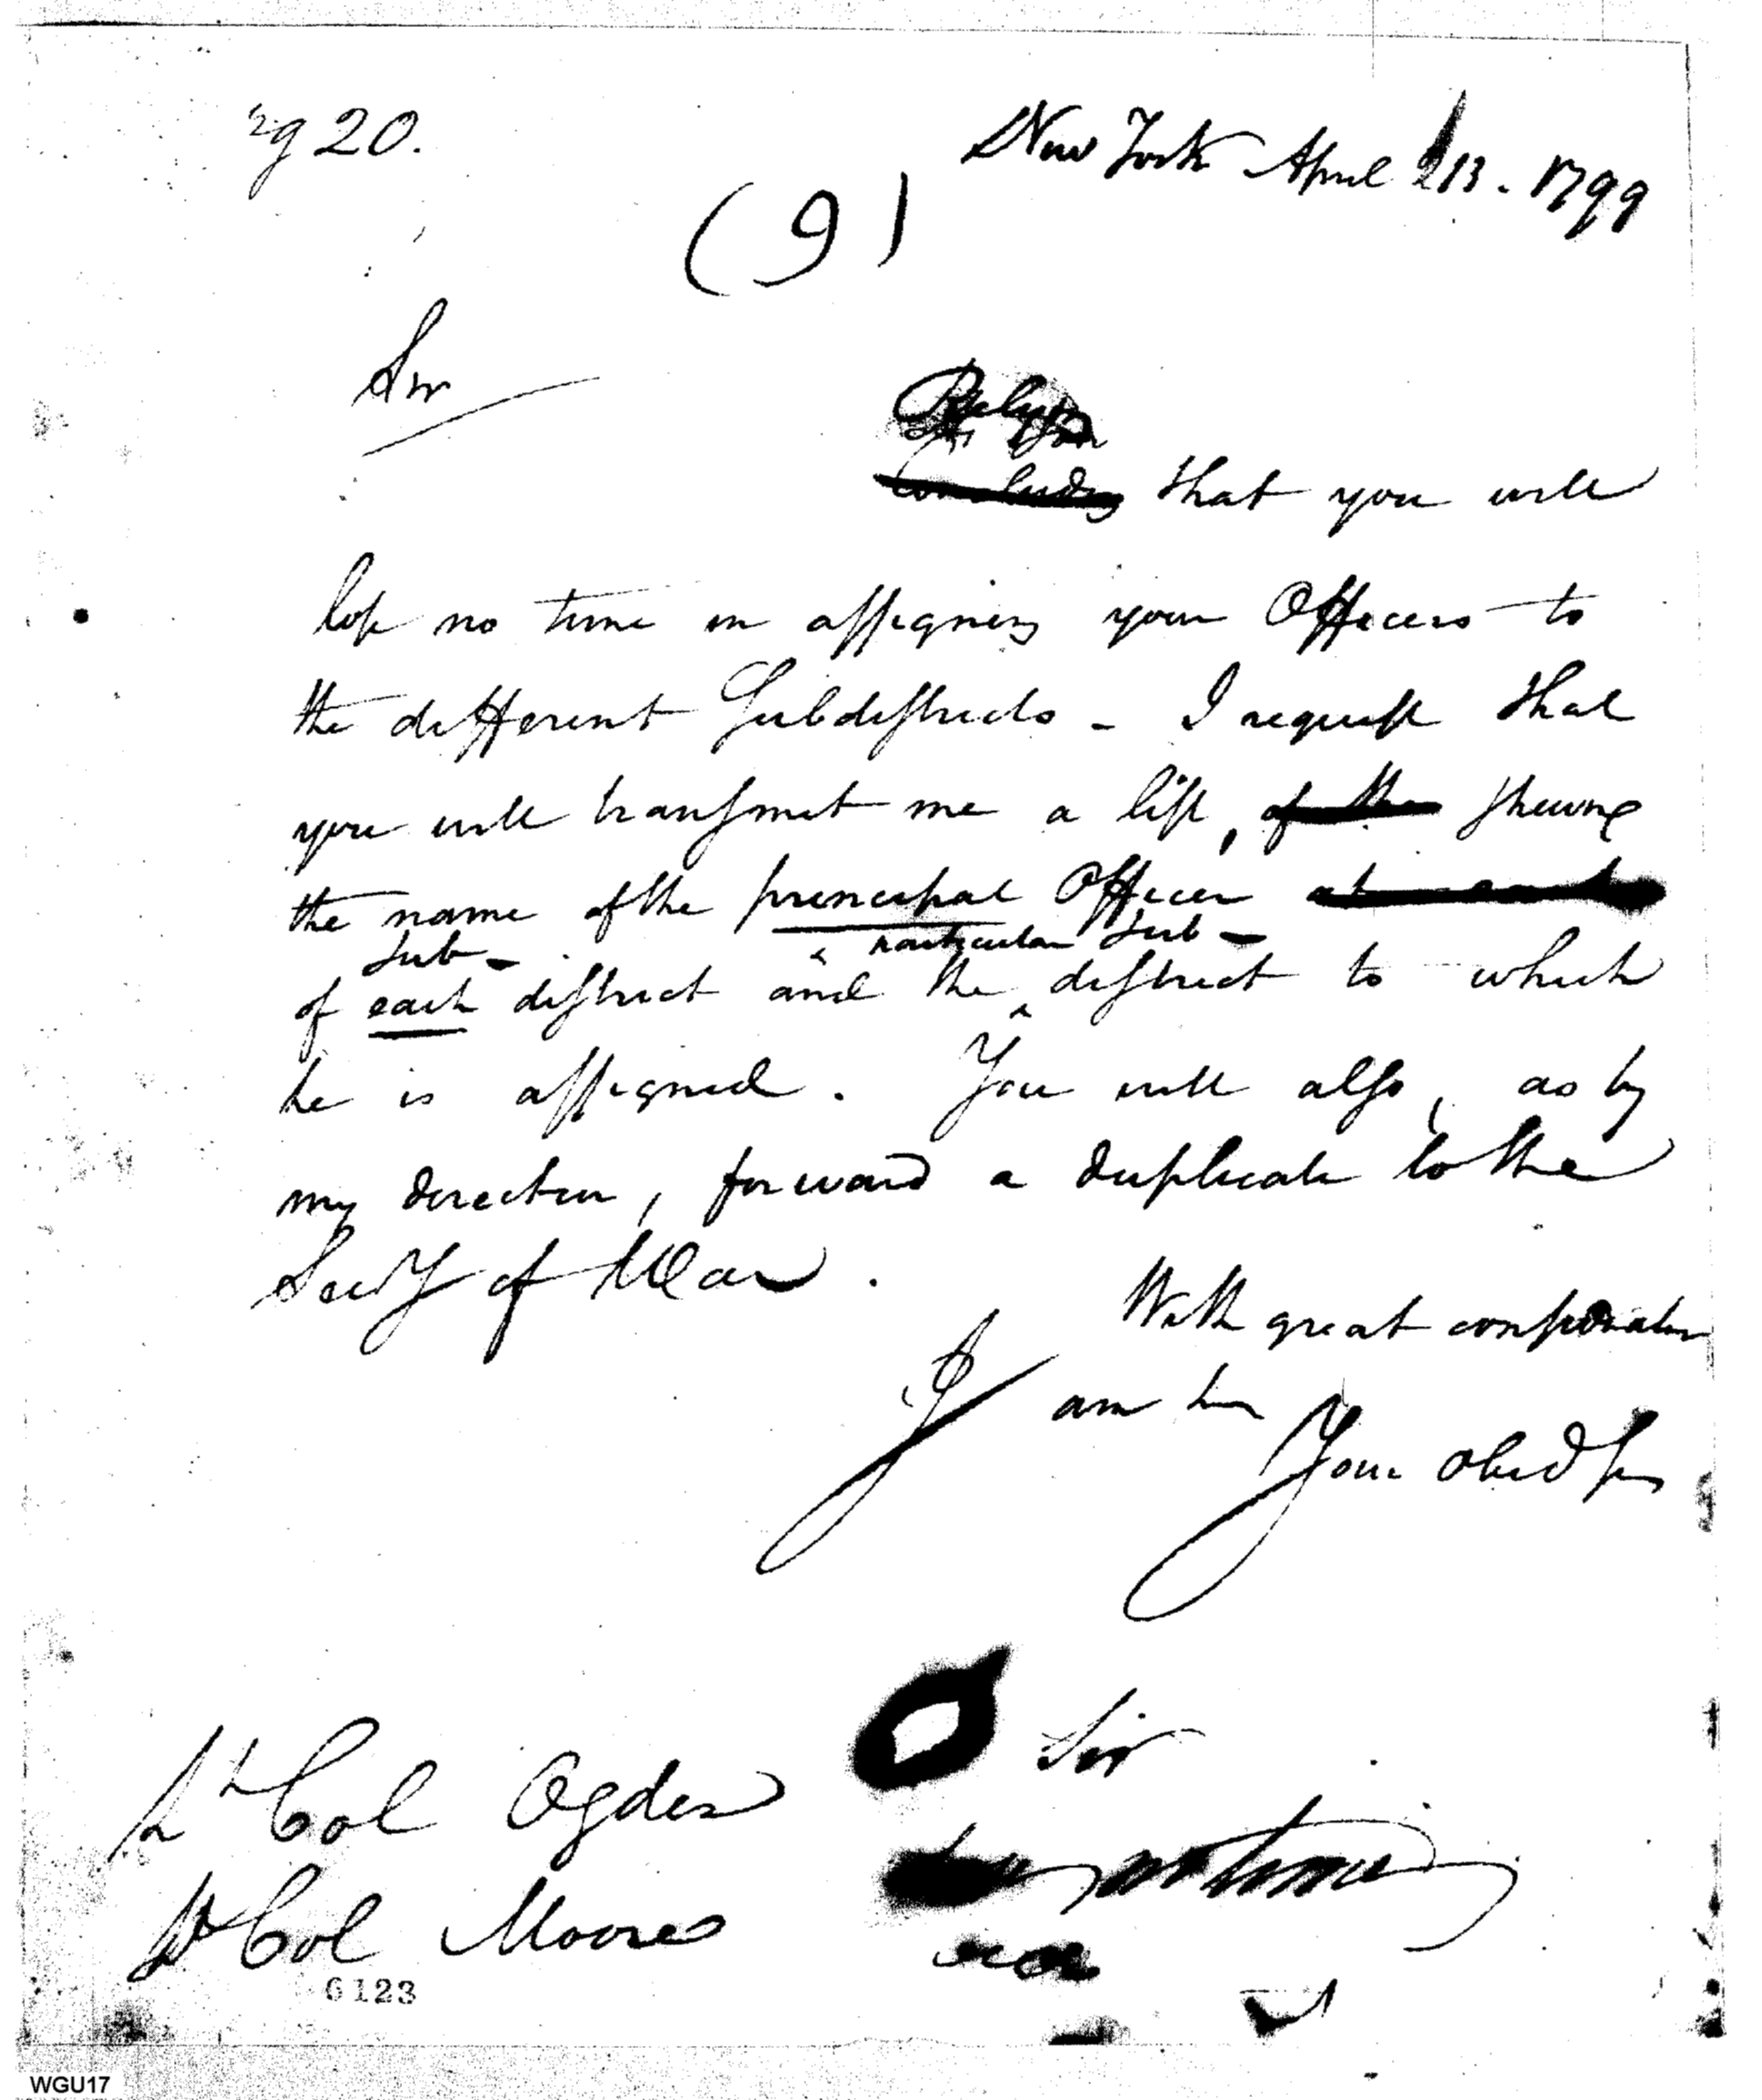 20.
New York April 13. 1799
(9)
Sir
Relying
Concluding that you will
lose no time in assigning your Officers to
the different Subdistricts - I request that
you will transmit me a list, of the shewing
the name of the principal Officer
sub- particular sub-
of each district and the district to which
he is assigned. You will also, as by
my direction, forward a duplicate to the
Secy of War.
With great consideration
I am Sir
Your obed ser
Sir
Lt Col Ogden
Lt Col Moore
6123
WGU17